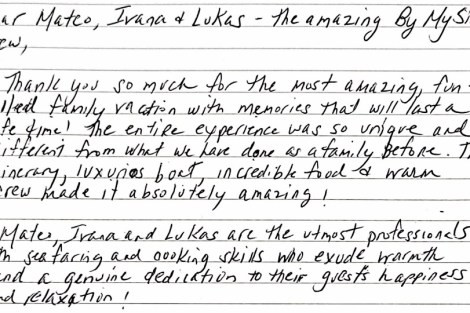 ar Mateo, Ivana & Lukas - the amazing By MySi
ew,
Thank you so much for the most amazing, fun-
lled family vacation with memories that will last a
fe time! The entire experience was so unique and
ifferent from what we have done as a family before. T
inerary, luxurios boat, incredible food & warm
rew made it absolutely amazing!
Mateo, Ivana and Lukas are the utmost professionals
n seafaring and cooking skills who exude warmth
nd a genuine dedication to their guests happiness
nd relaxation!